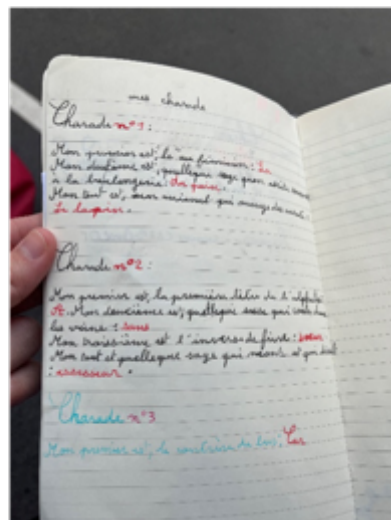 mes charade
Charade n°1 :
Mon premier est, le au féminin : La
Mon deuxième est, quelleque soge que on
à la boulangerie : Un pain.
Mon tout est, un animal qui mange des
Le lapin.
Charade n°2 :
Mon premier est, la première lettre de l'alphabet
A. Mon deuxième est, quelleque soge qui dans
les veine : sans
Mon troisième est l'inverse de frère : soeur
Mon tout est quelleque soge qui monte et qui
: assesseur.
Charade n°3
Mon premier est, le contraire de : Les